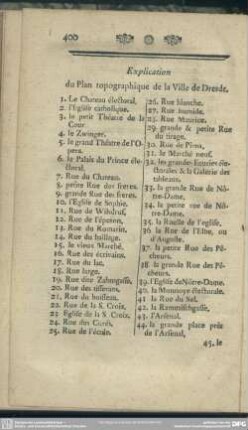 400
Explication
du Plan topographique de la Ville de Dresde.
1. Le Chateau électoral.
2. l'Eglise catholique.
3. le petit Théatre de la
Cour.
4. le Zwinger.
5. le grand Théatre de l'O-
pera.
6. le Palais du Prince éle-
ctoral.
7. Rue du Chateau.
8. petite Rue des freres.
9. grande Rue des freres.
10. l'Eglise de Sophie.
11. Rue de Wilsdruf.
12. Rue de l'éperon.
13. Rue du Romarin.
14. Rue du baillage.
15. le vieux Marché.
16. Rue des écrivains.
17. Rue du lac.
18. Rue large.
19. Rue dite Zahnsgasse.
20. Rue des tisserans.
21. Rue du buisson.
22. Rue de la S. Croix.
23. Eglise de la S. Croix.
24. Rue des Curés.
25. Rue de l'école.
26. Rue blanche.
27. Rue
28. Rue Maurice.
29. grande & petite Rue
du tirage.
30. Rue de Pirna.
31. le Marché neuf.
32. les grandes Ecuries éle-
ctorales & la Galerie des
tableaux.
33. la grande Rue de Nô-
tre-Dame.
34. la petite rue de Nô-
tre-Dame.
35. la Ruelle de l'eglise.
36. la Rue de l'Elbe, ou
d'Auguste.
37. la petite Rue des Pê-
cheurs.
38. la grande Rue des Pê-
cheurs.
39. l'Eglise de Nôtre-Dame.
40. la Monnoye électorale.
41. la Rue du Sel.
42. la Rammischgasse.
43. l'Arsenal.
44. la grande place près
de l'Arsenal,
45. le